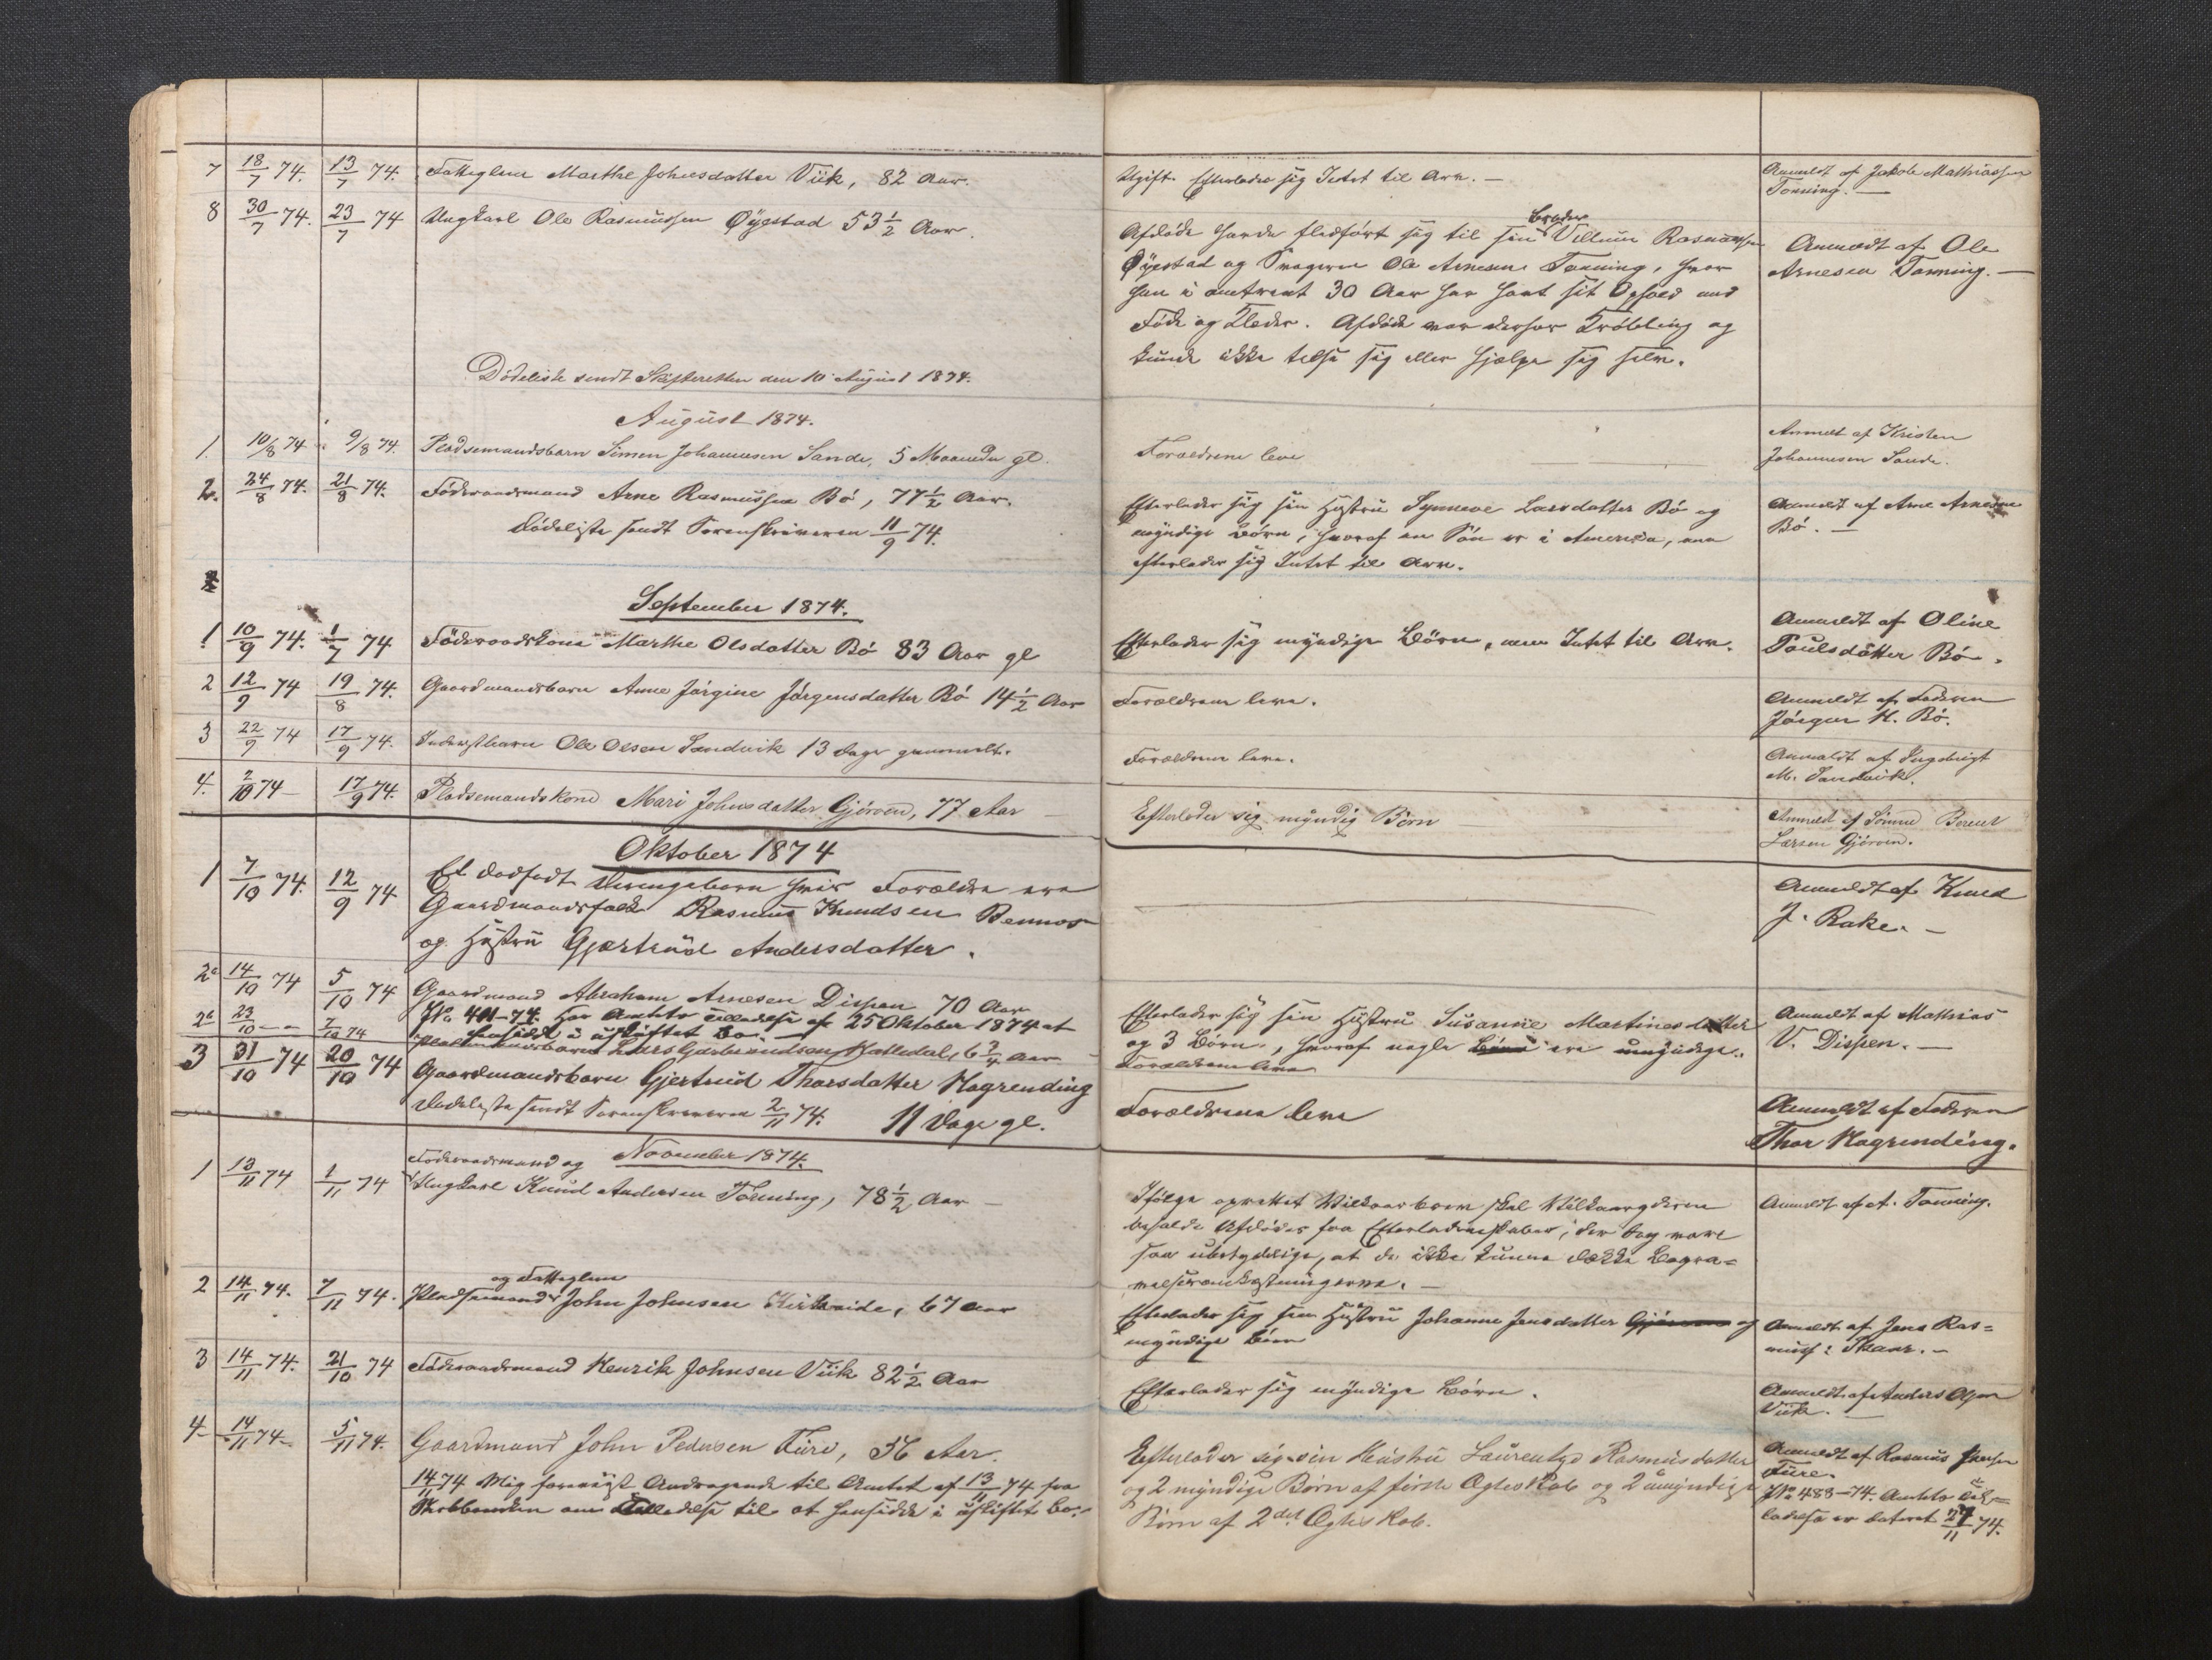 7 18/7 74. 13/7 74. Fattiglem Marthe Johnsdatter Viik, 82 Aar.
Ugift. Efterlader sig Intet til Arv. —
Anmeldt af Jakob Mathiassen
Tonning. —
8 30/7 74. 23/7 74 Ungkarl Ole Rasmussen Øyestad 53 1/2 Aar.
Broder
Afdøde havde fledført sig til sin Villum Rasmussen
Øyestad og Svageren Ole Arnesen Tonning, hvor
han i omtrent 30 Aar har havt sit Ophold med
Føde og Klæder. Afdøde var derhos Krøbling og
kunde ikke tilse sig eller hjælpe sig selv.
Anmeldt af Ole
Arnesen Tonning. —
Dødeliste sendt Skifteretten den 10 August 1874.
August 1874.
1. 10/8 74 9/8 74. Pladsemandsbarn Simen Johannesen Sande, 5 Maaneder gl.
Forældrene leve
Anmeldt af Kristen
Johannesen Sande.
2. 24/8 74. 21/8 74. Føderaadsmand Arne Rasmussen Bö, 77 1/2 Aar.
Dødeliste sendt Sorenskriveren 11/9 74.
Efterlader sig sin Hustru Synneve Larsdatter Bö og
myndige Børn, hvoraf en Søn er i Amerika, men
efterlader sig Intet til Arv.
Anmeldt af Arne Arnesen
Bö. —
September 1874.
1 10/9 74. 1/7 74 Føderaadskone Marthe Olsdatter Bö 83 Aar gl
Efterlader sig myndige Børn, men Intet til Arv.
Anmeldt af Oline
Poulsdatter Bö.
2 12/9 74 19/8 74. Gaardmandsbarn Anne Jørgine Jørgensdatter Bö 14 1/2 Aar
Forældrene leve.
Anmeldt af Faderen
Jørgen H. Bö.
3 22/9 74 17/9 74. Inderstbarn Ole Olsen Sandvik 13 Dage gammelt.
Forældrene leve.
Anmeldt af Ingebrigt
M. Sandvik.
4. 2/10 74 — 17/9 74. Pladsemandskone Mari Johnsdatter Gjörven, 77 Aar —
Efterlader sig myndig Börn
Anmeldt af Sønnen Berent
Larsen Gjörven.
Oktober 1874
1 7/10 74. 12/9 74 Et dødfødt Drengebarn hvis Forældre ere
Gaardmandsfolk Rasmus Knudsen Bennes
og Hustru Gjertrüd Andersdatter.
Anmeldt af Knud
J. Rake. —
2a 14/10 74 5/10 74 Gaardmand Abraham Arnesen Dispen 70 Aar
No 411-74. Har Amtets Tilladelse af 25 Oktober 1874 at
hensidde i uskiftet Bo. —
Efterlader sig sin Hustru Susanne Martinesdatter
og 3 Börn, hvoraf nogle ere umyndige.
Anmeldt af Mathias
V. Dispen. —
2a 23/10 — 7/10 74 Pladsemandsbarn Lars Hjelledal, 6 3/4 Aar —
Forældrene leve
3 31/10 74 20/10 74 Gaardmandsbarn Gjertrud Thorsdatter Hagrending
11 Dage gl.
Dødeliste sendt Sorenskriveren 2/11 74.
Forældrene leve
Anmeldt af Faderen
Thor Hagrending.
November 1874.
Føderaadsmand og
1 13/11 74 1/11 74 Ungkarl Knud Andersen Tonning, 78 1/2 Aar —
Ifølge oprettet Vilkaarbrev skal Vilkaaryderen
beholde Afdødes faa Efterladenskaber, der dog vare
saa ubetydelige, at de ikke kunne dække Begra=
velsesomkostningerne. —
Anmeldt af A. Tonning.
og Fattiglem
2 14/11 74. 7/11 74. Pladsemand John Johnsen Kirkeide, 67 Aar
Efterlader sig sin Hustru Johanne Jensdatter og
myndige Børn
Anmeldt af Jens Ras=
muss: Skaar. —
3 14/11 74. 21/10 74 Føderaadsmand Henrik Johnsen Viik 82 1/2 Aar
Efterlader sig myndige Børn.
Anmeldt af Anders Olsen
Viik. —
4 14/11 74 5/11 74. Gaardmand John Pedersen Füre, 56 Aar.
14/11 74 Mig forevist Andragende til Amtet af 13/11 74 fra
om Tilladelse til at hensidde i uskiftet Bo.
Efterlader sig sin Hustru Laurentze Rasmusdatter
og 2 myndige Börn af förste Ægteskab og 2 umyndige
Börn af 2det Ægteskab.
Anmeldt af Rasmus Iversen
Füre.
No 488-74. Amtets Til=
ladelse er dateret 27/11 74.